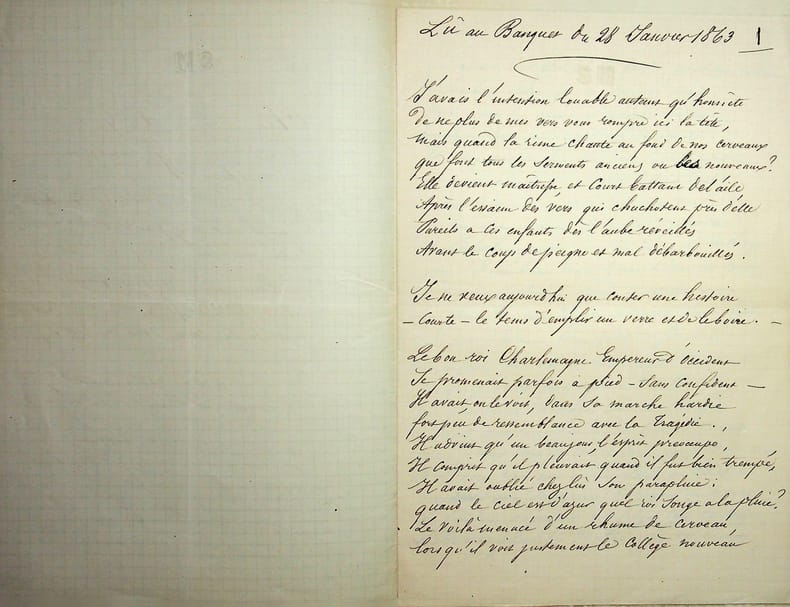 Lû au Banquet du 28 Janvier 1863
1
J'avais l'intention louable autant qu'honnête
de ne plus de mes vers vous rompre ici la tête,
Mais quand la rime chante au fond de nos cerveaux
que font tous les serments anciens ou les nouveaux?
Elle devient maîtresse, et court battant de l'aile
Après l'essaim des vers qui chuchotent près d'elle
Pareils à ces enfants dès l'aube réveillés
Avant le coup de peigne et mal débarbouillés.
Je ne veux aujourd'hui que conter une histoire
– Courte – le tems d'emplir un verre et de le boire. –
Le bon roi Charlemagne Empereur d'Occident
Se promenait parfois à pied – sans confident –
Il avait, on le voit, dans sa marche hardie
fort peu de ressemblance avec la Tragédie.
Il advint qu'un beau jour, l'esprit préoccupé,
Il comprit qu'il pleuvait quand il fut bien trempé,
Il avait oublié chez lui son parapluie:
quand le ciel est d'azur quel roi songe a la pluie?
Le voilà menacé d'un rhume de cerveau,
lorsqu'il voit justement le Collège nouveau